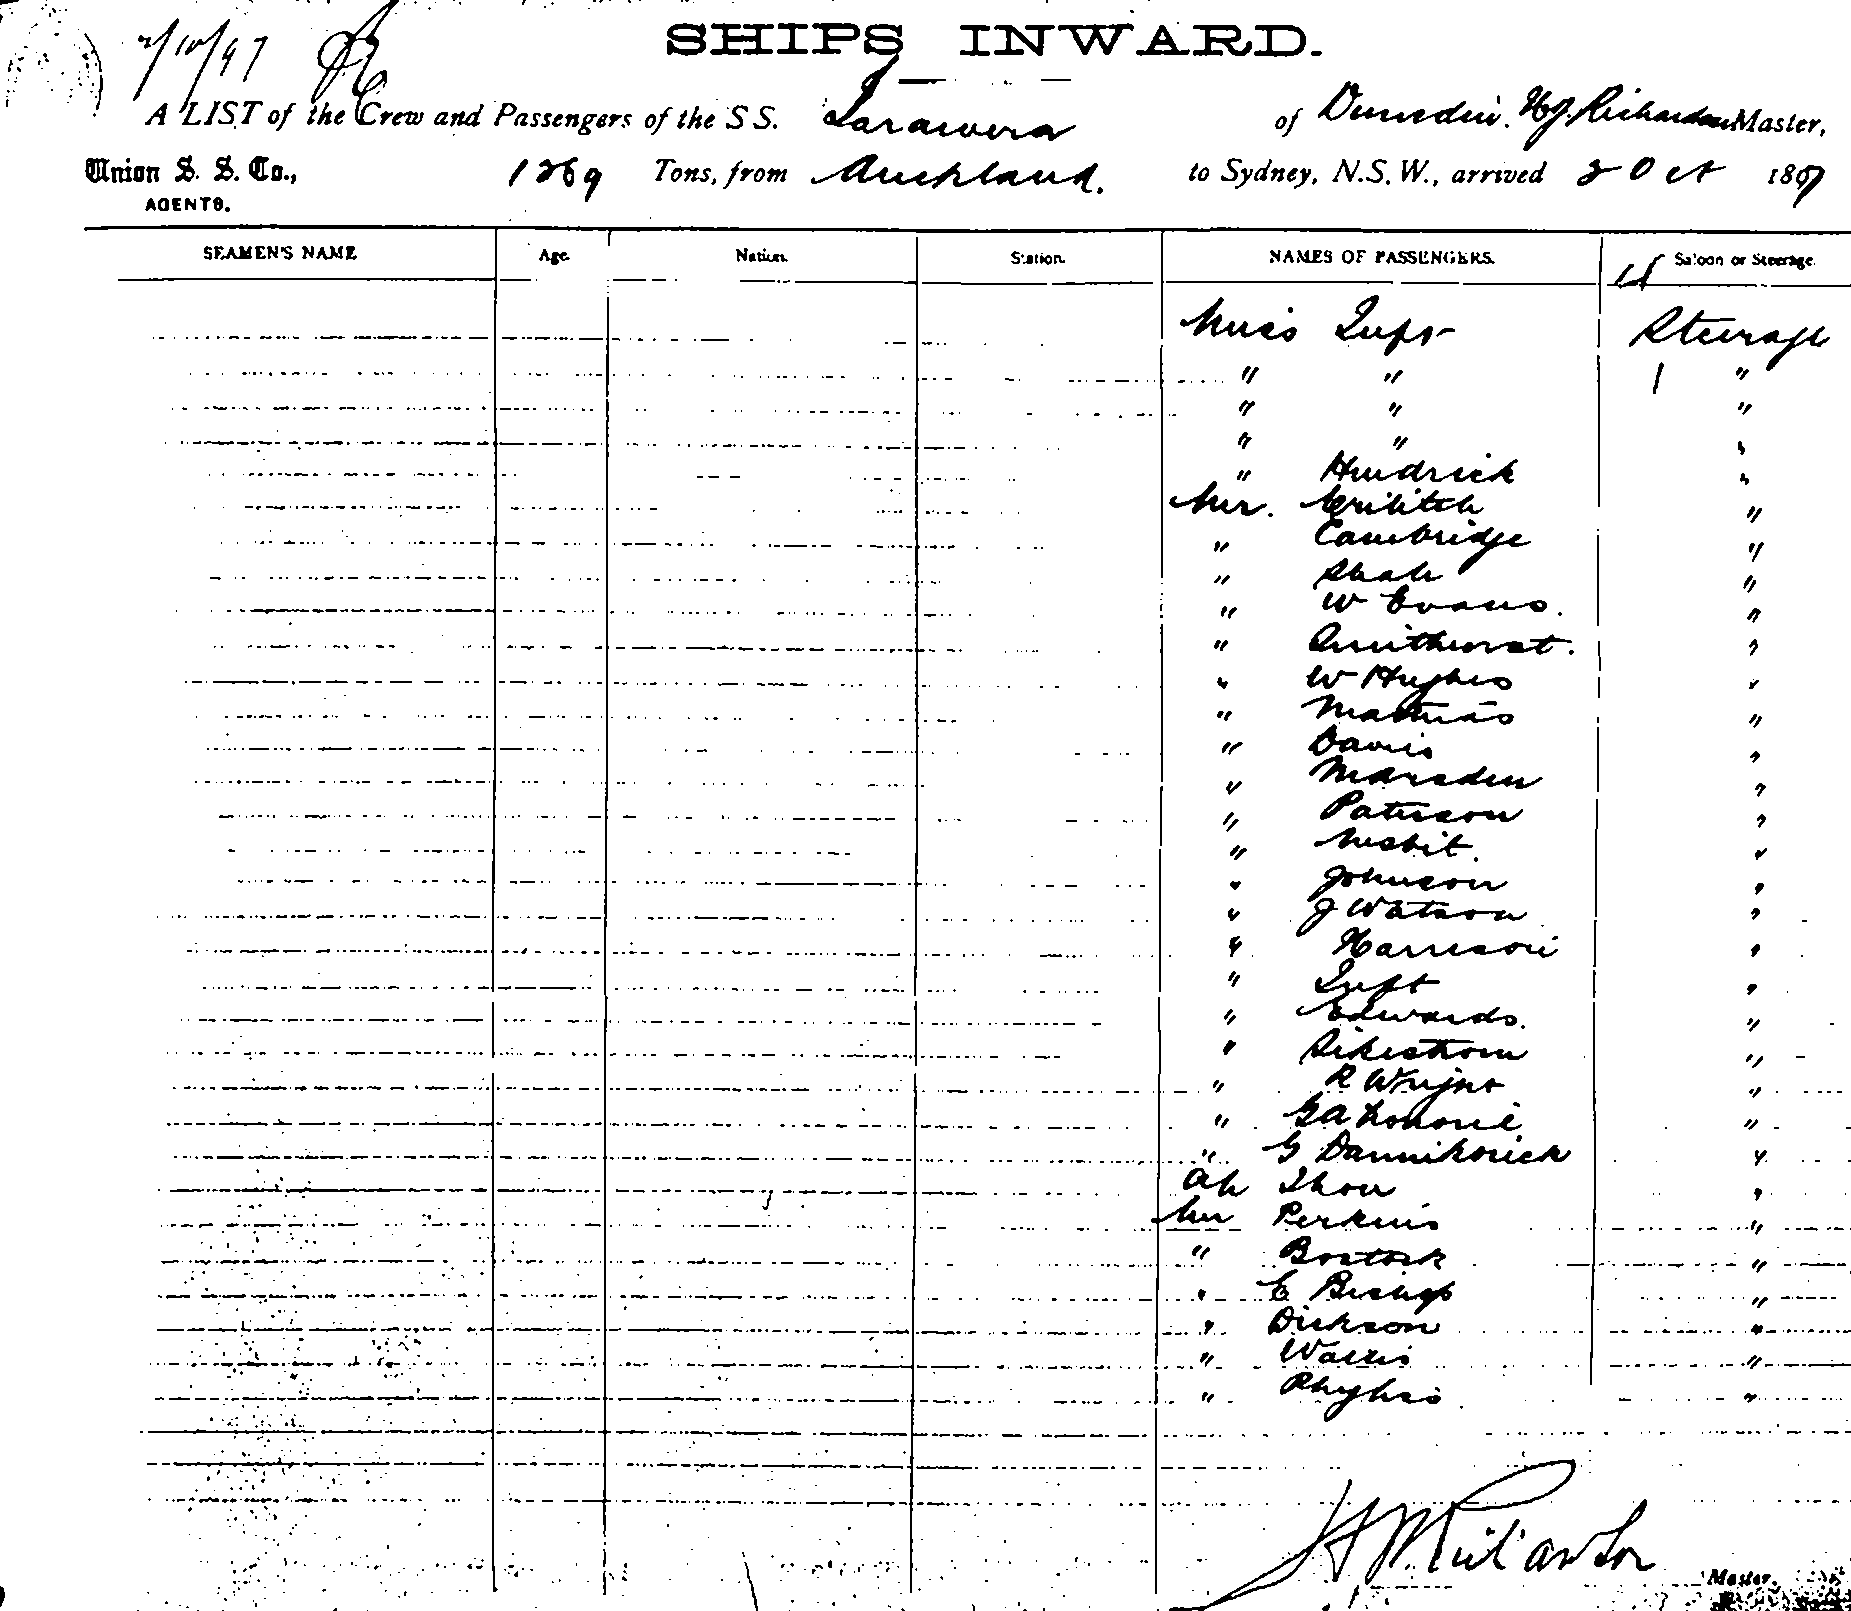 2/10/97
SHIPS INWARD.
A LIST of the Crew and Passengers of the S S. Tarawera of Dunedin. H.J. Richardson Master,
Union S. S. Co., 1269 Tons, from Auckland. to Sydney, N.S.W., arrived 2 Oct 1897
AGENTS.
SEAMEN'S NAME Age. Nation. Station. NAMES OF PASSENGERS. Saloon or Steerage.
Miss Luft Steerage
" " 1 "
" " "
" " "
" Hendrick "
Mr. "
" Cambridge "
" "
" W Evans. "
" Smithurst. "
" W Hughes "
" "
" Davis "
" Marsden "
" Paterson "
" Nesbit. "
" Johnson "
" J Watson "
" Harrison "
" Luft "
" Edwards. "
" "
" R Wright "
" G A "
" G "
Ah "
Mr Perkins "
" Bostock "
" E Bishop "
" Dickson "
" Wallis "
" "
Master.